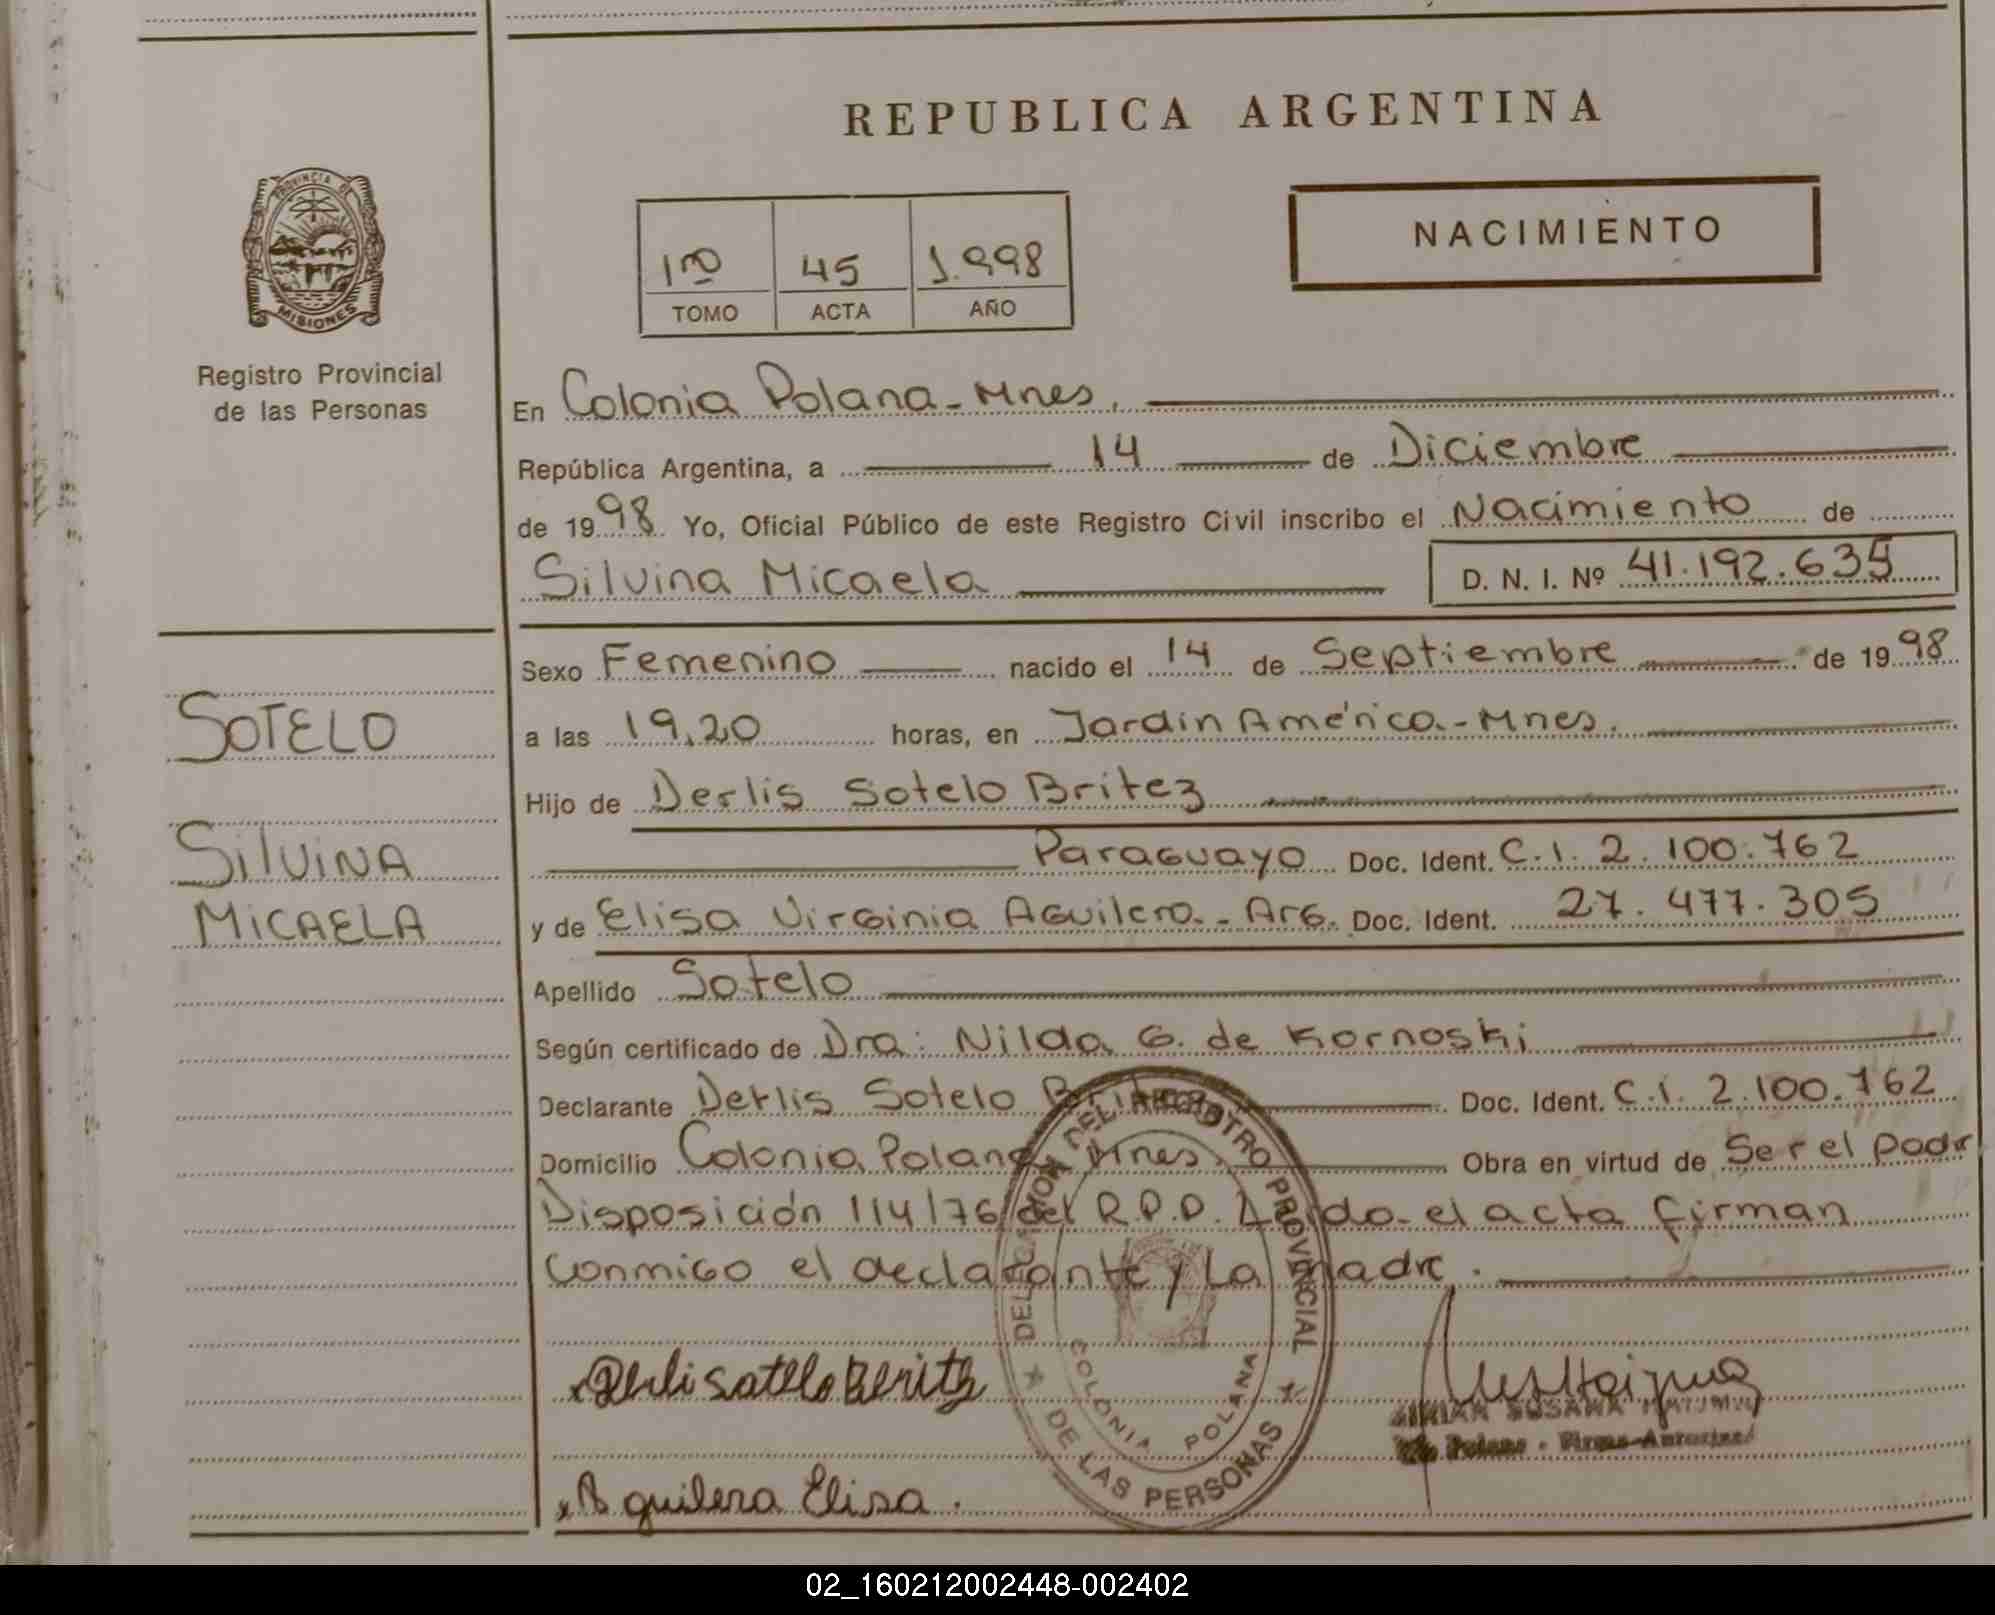 REPUBLICA ARGENTINA
PROVINCIA DE
MISIONES
Registro Provincial
de las Personas
1ro 45 1.998
TOMO ACTA AÑO
NACIMIENTO
En Colonia Polana - Mnes.
República Argentina, a 14 de Diciembre
de 1998 Yo, Oficial Público de este Registro Civil inscribo el Nacimiento de
Silvina Micaela D. N. I. Nº 41.192.635
SOTELO
SILVINA
MICAELA
Sexo Femenino nacido el 14 de Septiembre de 1998
a las 19,20 horas, en Jardin América - Mnes.
Hijo de Derlis Sotelo Britez
Paraguayo Doc. Ident. C.I. 2.100.762
y de Elisa Virginia Aguilera - Arg. Doc. Ident. 27.477.305
Apellido Sotelo
Según certificado de Dra: Nilda G. de Kornoski
Declarante Derlis Sotelo Britez Doc. Ident. C.I. 2.100.762
Domicilio Colonia Polana Mnes. Obra en virtud de Ser el padr
Disposición 114/76 del R.P.P. Leido el acta firman
conmigo el declarante y La madre.
DELEGACION DEL REGISTRO PROVINCIAL
DE LAS PERSONAS
COLONIA POLANA
Aguilera Elisa.
SUSANA
Polana - Firma Autorizad
02_160212002448-002402